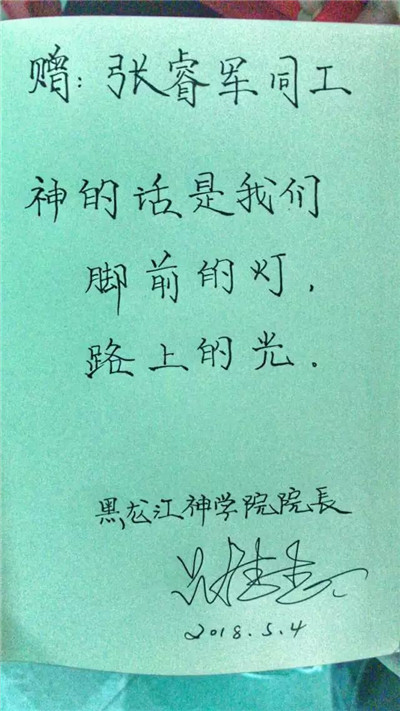 赠：张睿军同工
神的话是我们
脚前的灯，
路上的光．
黑龙江神学院院長
2018.5.4